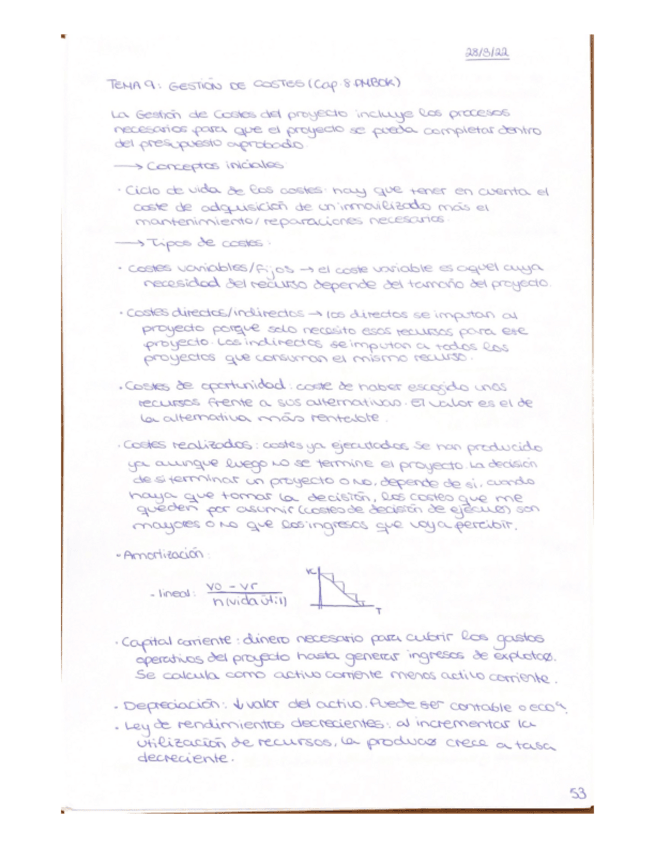 28/3/22
TEMA 9: GESTIÓN DE COSTES (Cap 8 PMBOK)
La Gestión de Costes del proyecto incluye los procesos
necesarios para que el proyecto se pueda completar dentro
del presupuesto aprobado.
→ Conceptos iniciales
· Ciclo de vida de los costes: hay que tener en cuenta el
coste de adquisición de un inmovilizado más el
mantenimiento/reparaciones necesarios.
→ Tipos de costes:
· Costes variables/fijos → el coste variable es aquel cuya
necesidad del recurso depende del tamaño del proyecto.
· Costes directos/indirectos → los directos se imputan al
proyecto porque solo necesito esos recursos para ese
proyecto. Los indirectos se imputan a todos los
proyectos que consuman el mismo recurso.
· Costes de oportunidad: coste de haber escogido unos
recursos frente a sus alternativas. El valor es el de
la alternativa más rentable.
· Costes realizados: costes ya ejecutados. Se han producido
ya aunque luego no se termine el proyecto. La decisión
de si terminar un proyecto o no, depende de si, cuando
haya que tomar la decisión, los costes que me
queden por asumir (costes de decisión de ejecuc) son
mayores o no que los ingresos que voy a percibir.
- Amortización:
- lineal: vo - vr / n(vida útil)
VC
T
· Capital corriente: dinero necesario para cubrir los gastos
operativos del proyecto hasta generar ingresos de explotac.
Se calcula como activo corriente menos activo corriente.
· Depreciación: ↓ valor del activo. Puede ser contable o ecoª.
· Ley de rendimientos decrecientes: al incrementar la
utilización de recursos, la producc crece a tasa
decreciente.
53